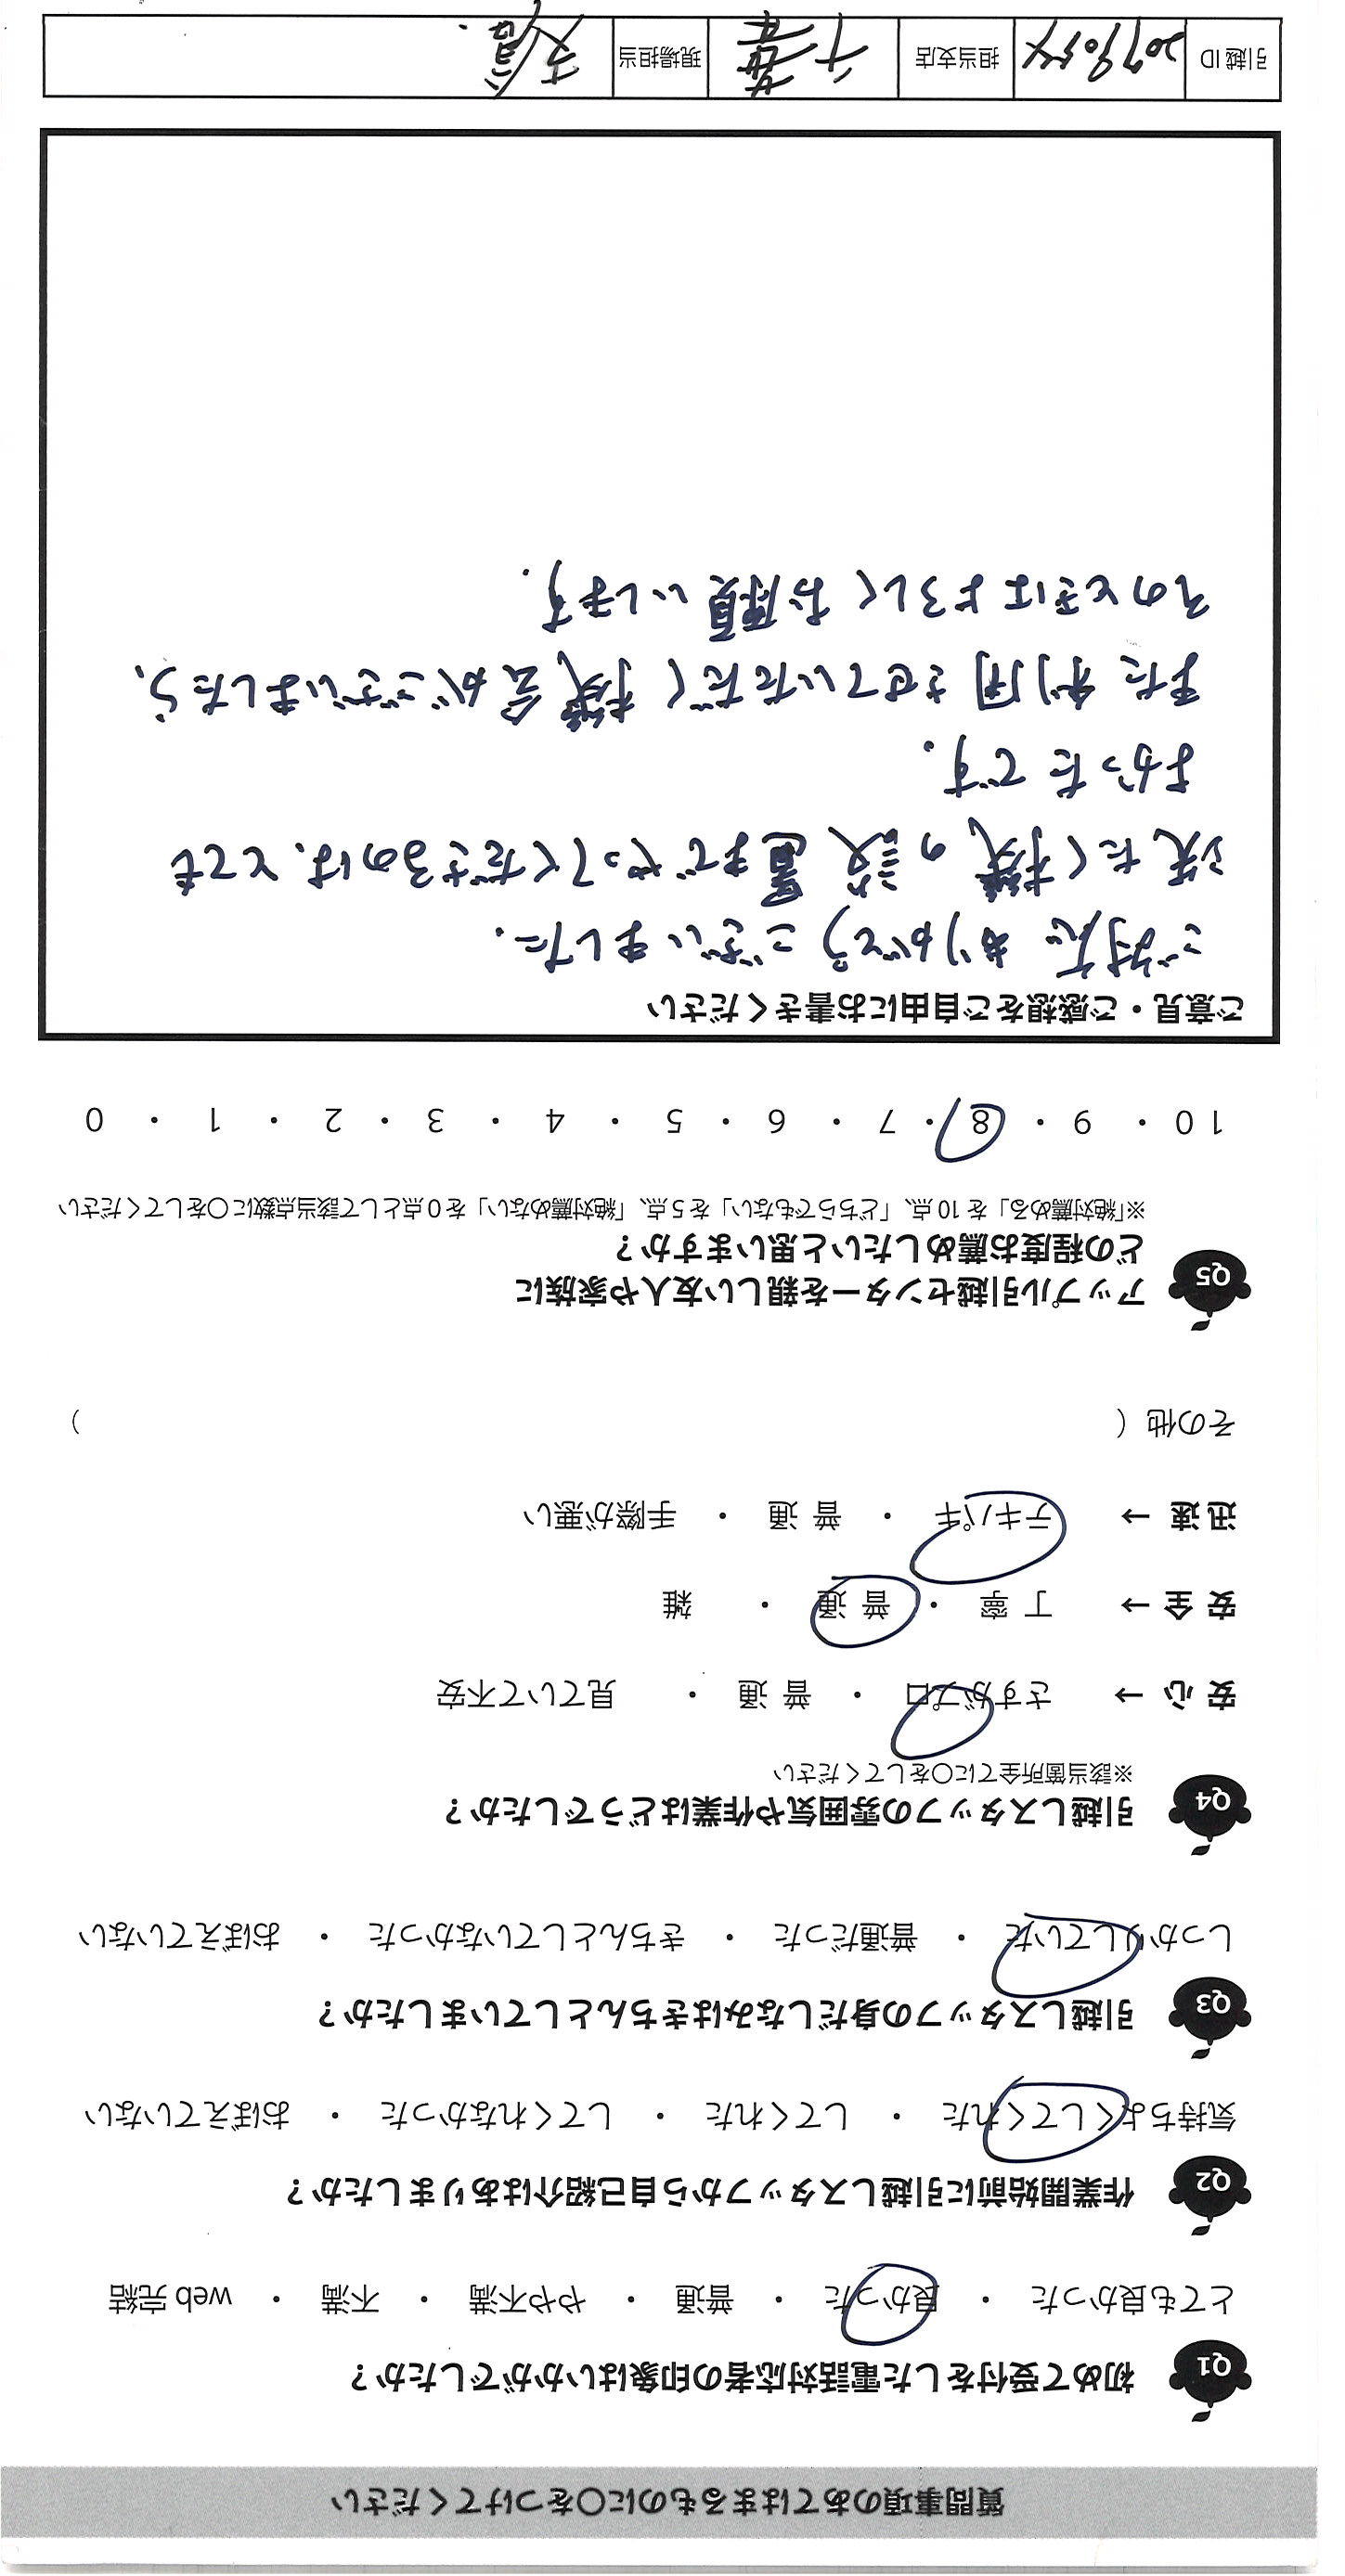 質問事項のあてはまるものに〇をつけてください
Q1 初めて受付をした電話対応者の印象はいかがでしたか？
とても良かった ・ 良かった ・ 普通 ・ やや不満 ・ 不満 ・ web 完結
Q2 作業開始前に引越しスタッフから自己紹介はありましたか？
気持ちよくしてくれた ・ してくれた ・ してくれなかった ・ おぼえていない
Q3 引越しスタッフの身だしなみはきちんとしていましたか？
しっかりしていた ・ 普通だった ・ きちんとしていなかった ・ おぼえていない
Q4 引越しスタッフの雰囲気や作業はどうでしたか？
※該当箇所全てに〇をしてください
安心 → さすがプロ ・ 普通 ・ 見ていて不安
安全 → 丁寧 ・ 普通 ・ 雑
迅速 → テキパキ ・ 普通 ・ 手際が悪い
その他（ ）
Q5 アップル引越センターを親しい友人や家族に
どの程度お薦めしたいと思いますか？
※「絶対薦める」を 10 点、「どちらでもない」を 5 点、「絶対薦めない」を 0 点として該当点数に〇をしてください
10 ・ 9 ・ 8 ・ 7 ・ 6 ・ 5 ・ 4 ・ 3 ・ 2 ・ 1 ・ 0
ご意見・ご感想をご自由にお書きください
ご対応ありがとうございました.
洗たく機の設置までやってくださるのは、とても
よかったです.
また利用させていただく機会がございましたら、
そのときはよろしくお願いします.
引越 ID 担当支店 千葉 現場担当